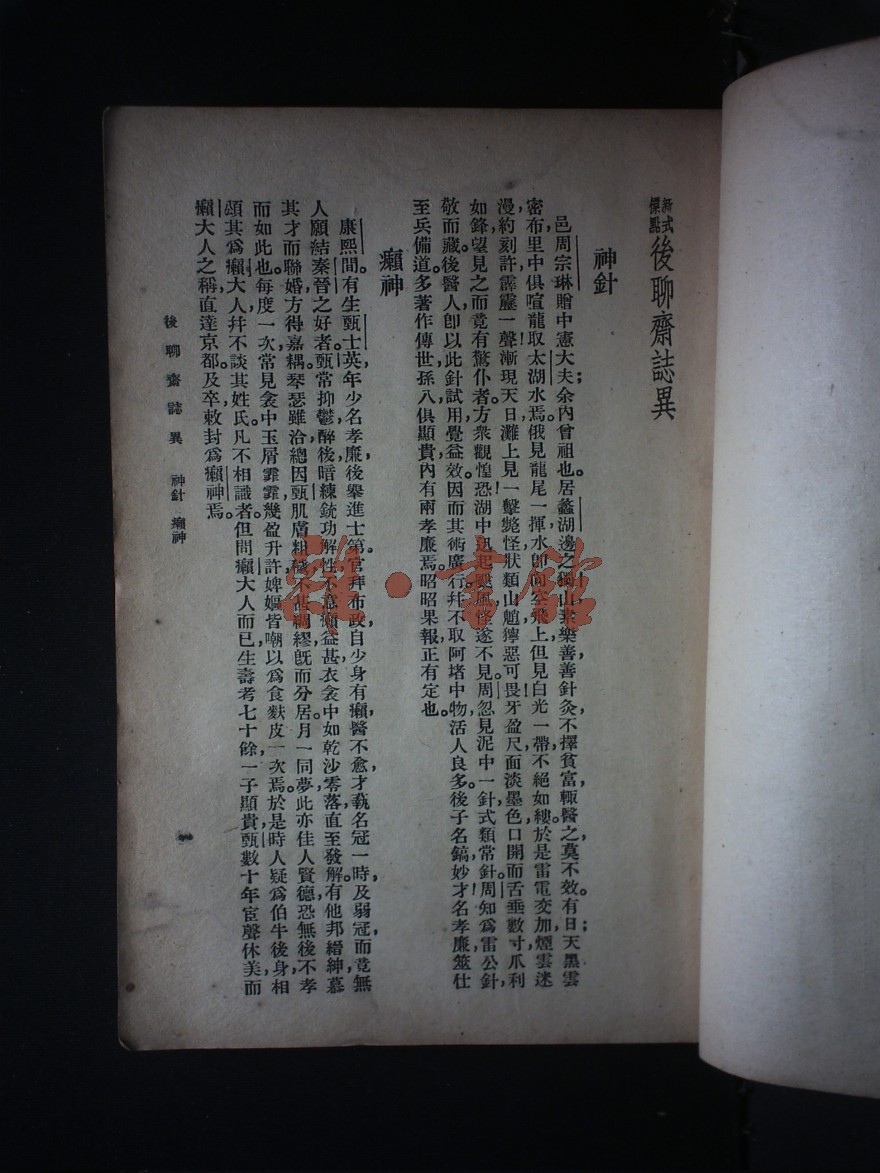 新式標點 後聊齋誌異
神針
邑周宗琳贈中憲大夫；余內曾祖也。居蠡湖邊之獨山，素樂善，善針灸，不擇貧富，輒醫之，莫不效。有日；天黑雲
密布，里中俱喧龍取太湖水焉。俄見龍尾一揮，水卽向空飛上，但見白光一帶，不絕如縷，於是雷電交加，煙雲迷
漫，約刻許，霹靂一聲，漸現天日，灘上見一擊斃怪，狀類山魈，獰惡可畏！牙盈尺，面淡墨色，口開而舌垂數寸，爪利
如鋒，望見之而竟有驚仆者。方衆觀惶恐，湖中迅起颶風，怪遂不見。周忽見泥中一針，式類常針。周知爲雷公針，
敬而藏。後醫人卽以此針試用，覺益效。因而其術廣行，幷不取阿堵中物，活人良多。後子名鎬，妙才！名孝廉，筮仕
至兵備道，多著作傳世，孫八，俱顯貴，內有兩孝廉焉。昭昭果報，正有定也。
癩神
康熙間。有生甄士英，年少名孝廉，後舉進士第。官拜布政，自少身有癩，醫不愈，才㦲名冠一時，及弱冠，而竟無
人願結秦晉之好者。甄常抑鬱，醉後暗練銃功解性，不意癩益甚，衣衾中如乾沙零落，直至發解。有他邦縉紳，慕
其才而聯婚，方得嘉耦，琴瑟雖洽，總因甄肌膚粗穢，不甚綢繆，旣而分居。月一同夢，此亦佳人賢德，恐無後不孝
而如此也。每度一次，常見衾中玉屑霏霏，幾盈升許，婢嫗皆嘲以爲食麩皮一次焉。於是時人疑爲伯牛後身，相
頌其爲癩大人，幷不談其姓氏。凡不相識者，但問癩大人而已，生壽考七十餘，一子顯貴，甄數十年宦聲休美，而
癩大人之稱，直達京都，及卒，敕封爲癩神焉。
後聊齋誌異 神針 癩神
雜·書館